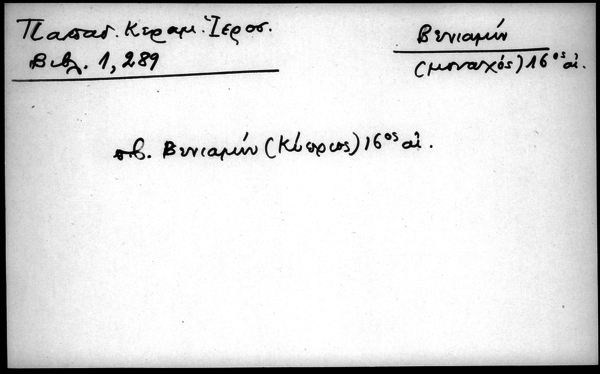 Παπαδ. Κεραμ. Ἱεροσ.
Βιβλ. 1, 289
Βενιαμίν
(μοναχός) 16ος αἰ.
πβ. Βενιαμίν (Κύπριος) 16ος αἰ.